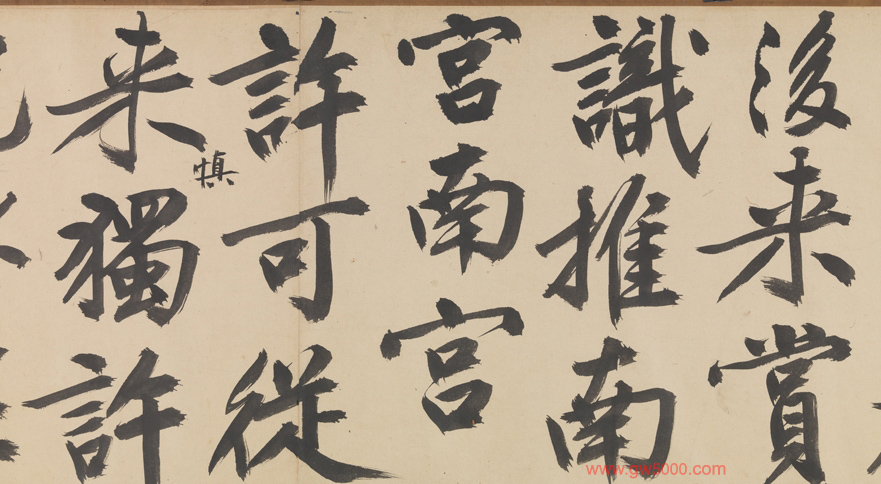 後来賞
識推南
宮南宮
許可從
慎
来獨許